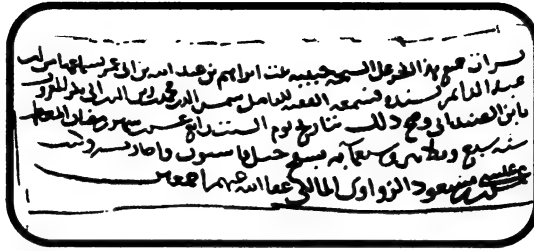 قرات جميع هذا الجزء على الشيخة حبيبة بنت ابراهيم بن عبد الله بن ابي عمر بسماعها من ابن
عبد الدائم بسنده فسمعه الفقيه الفاضل شمس الدين محمد بن الدين ابي المعروف
بابن وصح ذلك بتاريخ يوم السبت رابع عشر شهر رمضان المعظم
سنة سبع وثلاثين وسبعمايه بسفح جبل قاسيون واجازت وكتب
مسعود الزواوي المالكي عفا الله عنهم اجمعين